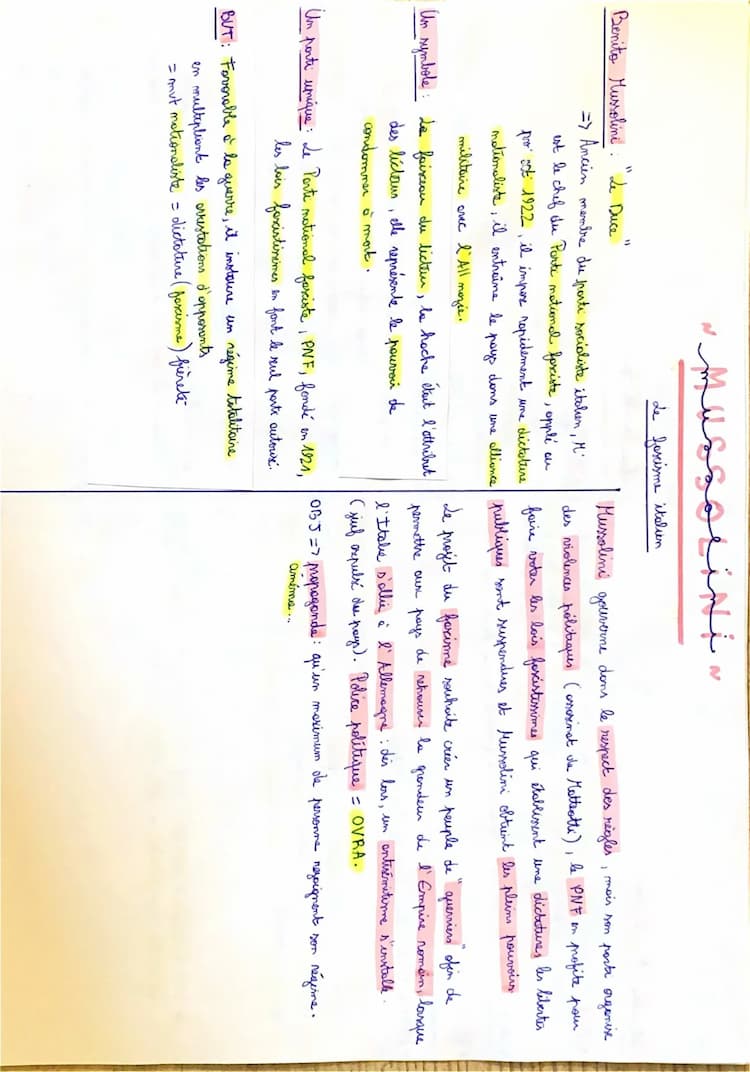 ~ MUSSOLINI ~
mussolini
Le fascisme italien
Benito Mussolini : "Le Duce"
=> Ancien membre du parti socialiste italien, M
est le chef du Parti national fasciste, applé au
pvr oct 1922, il impose rapidement une dictature
nationaliste, il entraîne le pays dans une alliance
militaire avec l'All nazie.
Un symbole : Le faisceau du licteur, la hache était l'attribut
des licteurs, elle représente le pouvoir de
condamner à mort.
Un parti unique : Le Parti national fasciste, PNF, fondé en 1921,
les lois fascistissimes en font le seul parti autorisé.
BUT : Favorable à la guerre, il instaure un régime totalitaire
en multipliant les arrestations d'opposants
= mvt nationaliste = dictature (fascisme) fièreté
Mussolini gouverne dans le respect des règles, mais son parti organise
des violences politiques (assassinat de Matteotti), le PNF en profite pour
faire voter les lois fascistissimes qui établissent une dictature, les libertés
publiques sont suspendues et Mussolini obtient les pleins pouvoirs
Le projet du fascisme souhaite créer un peuple de "guerriers" afin de
permettre aux pays de retrouver la grandeur de l'Empire romain, lorsque
l'Italie s'allie à l'Allemagne : dès lors, un antisémitisme s'installe.
(juif expulsé du pays). Police politique = OVRA.
OBJ => propagande : qu'un maximum de personne rejoignent son régime.